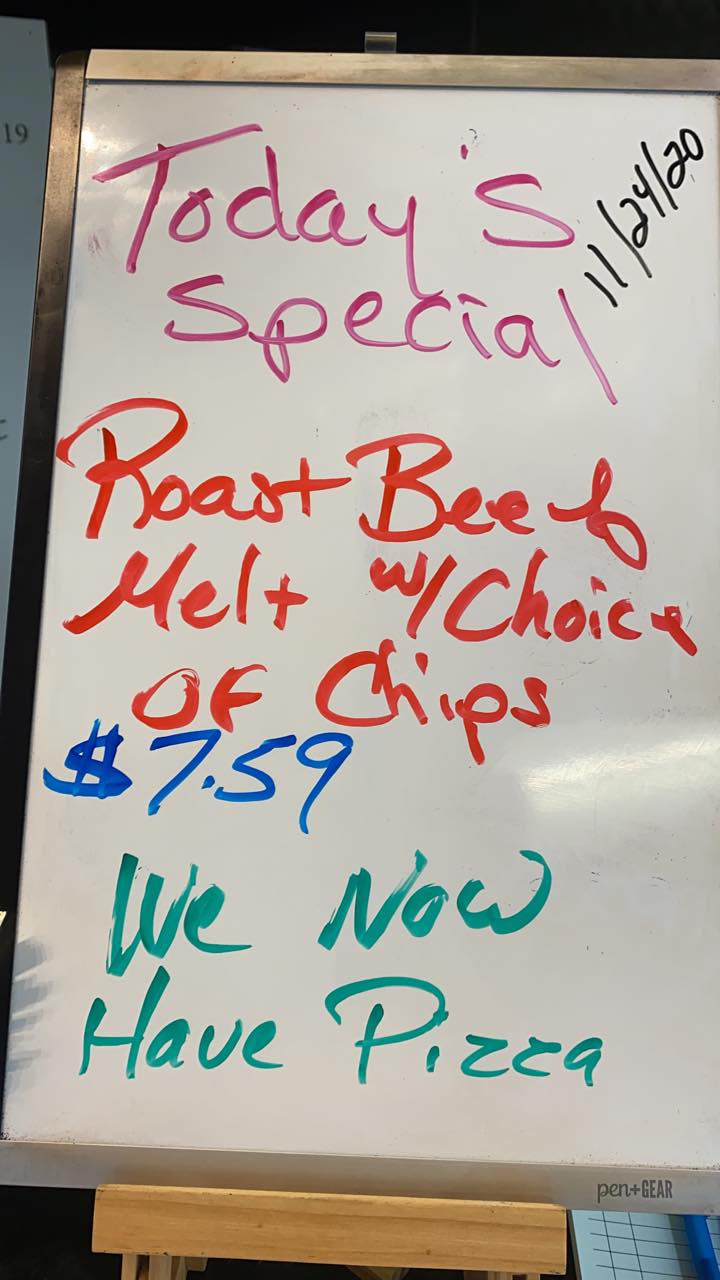 19
Today's
Special
11/24/20
Roast Beef
Melt w/Choice
OF Chips
$7.59
We Now
Have Pizza
pen+GEAR